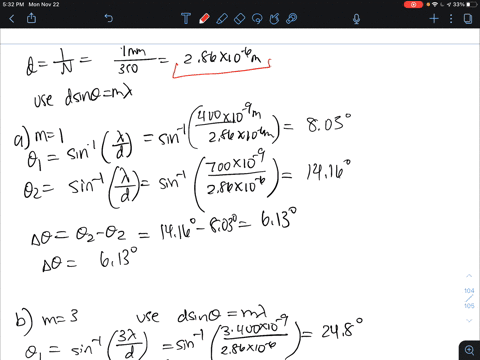 5:32 PM Mon Nov 22
33%
d = 1/N = 1mm/350 = 2.86×10⁻⁶m
use dsinθ=mλ
a) m=1
θ₁ = sin⁻¹(λ/d) = sin⁻¹(400×10⁻⁹m/2.86×10⁻⁶m) = 8.03°
θ₂ = sin⁻¹(λ/d) = sin⁻¹(700×10⁻⁹/2.86×10⁻⁶) = 14.16°
Δθ = θ₂-θ₂ = 14.16°-8.03° = 6.13°
Δθ = 6.13°
104/105
b) m=3 use dsinθ=mλ
θ₁ = sin⁻¹(3λ/d) = sin⁻¹(3.400×10⁻⁹/2.86×10⁻⁶) = 24.8°